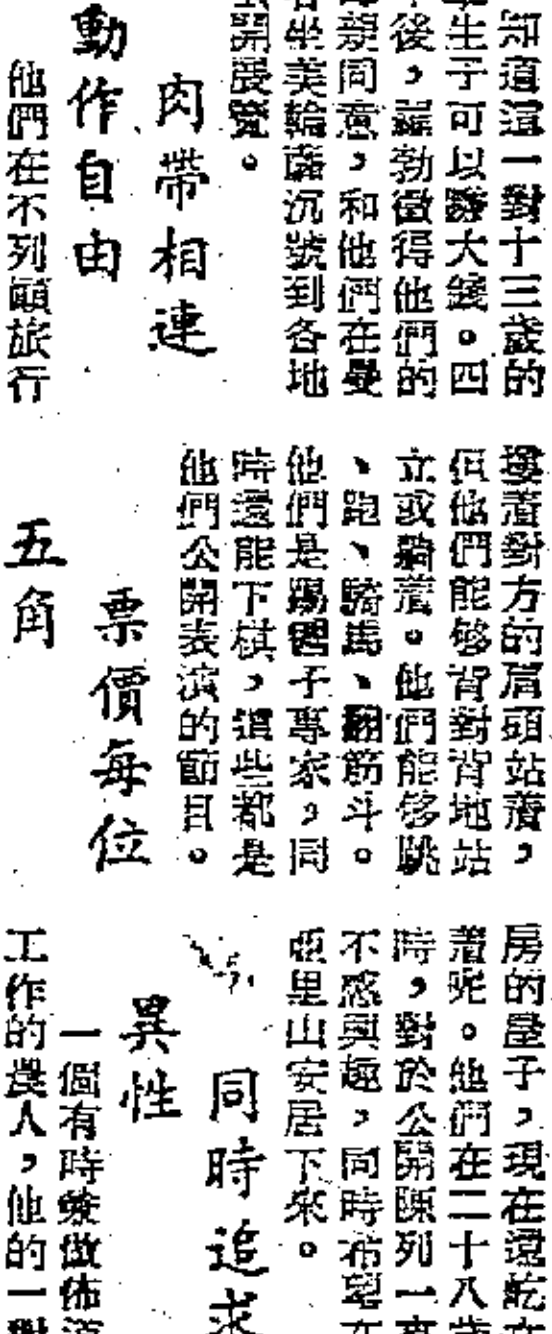 知道這一對十三歲的
生子可以賺大錢。四
後，羅勃徵得他們的
親同意，和他們在曼
坐美輪薩沉號到各地
開展覽。
肉帶相連
動作自由
他們在不列顛旅行
摟着對方的肩頭站着，
但他們能够背對背地站
立或騎着。他們能够跳
、跑、騎馬、翻筋斗。
他們是踢毽子專家，同
時還能下棋，這些都是
他們公開表演的節目。
票價每位
五角
房的屋子，現在還屹
着呢。他們在二十八歲
時，對於公開陳列一事
不感興趣，同時希望在
亞里山安居下來。
同時追求
異性
一個有時兼做佈道
工作的農人，他的一對